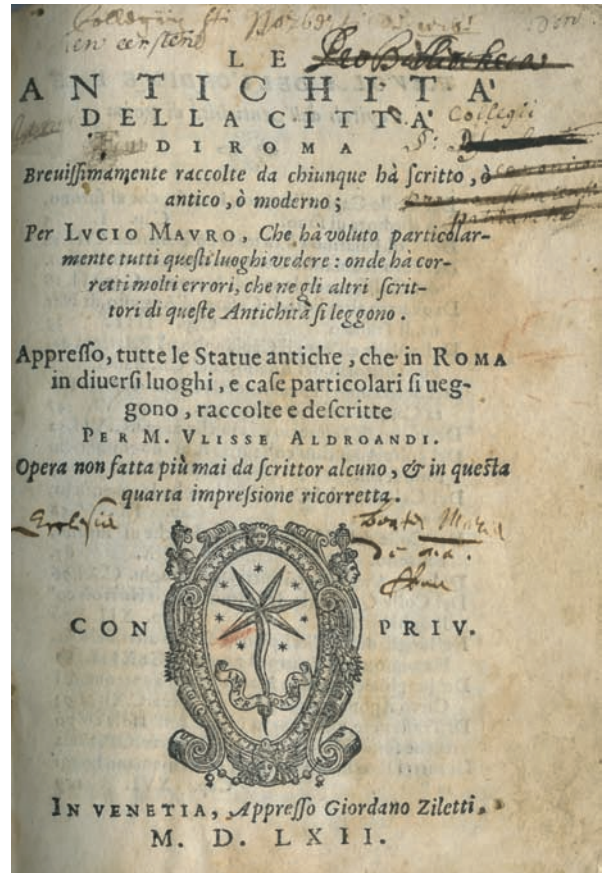 LE
ANTICHITA'
DELLA CITTA'
DI ROMA
Breuiſſimamente raccolte da chiunque hà ſcritto, ò
antico, ò moderno;
Per LVCIO MAVRO, Che hà voluto particolar-
mente tutti queſti luoghi vedere: onde hà cor-
retti molti errori, che negli altri ſcrit-
tori di queſte Antichità ſi leggono.
Appreſſo, tutte le Statue antiche, che in ROMA
in diuerſi luoghi, e caſe particolari ſi ueg-
gono, raccolte e deſcritte
PER M. VLISSE ALDROANDI.
Opera non fatta più mai da ſcrittor alcuno, & in queſta
quarta impreſſione ricorretta.
CON PRIV.
IN VENETIA, Appreſſo Giordano Ziletti,
M. D. LXII.